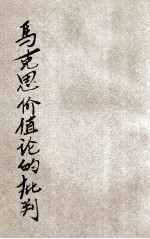 馬克思价值论的批判